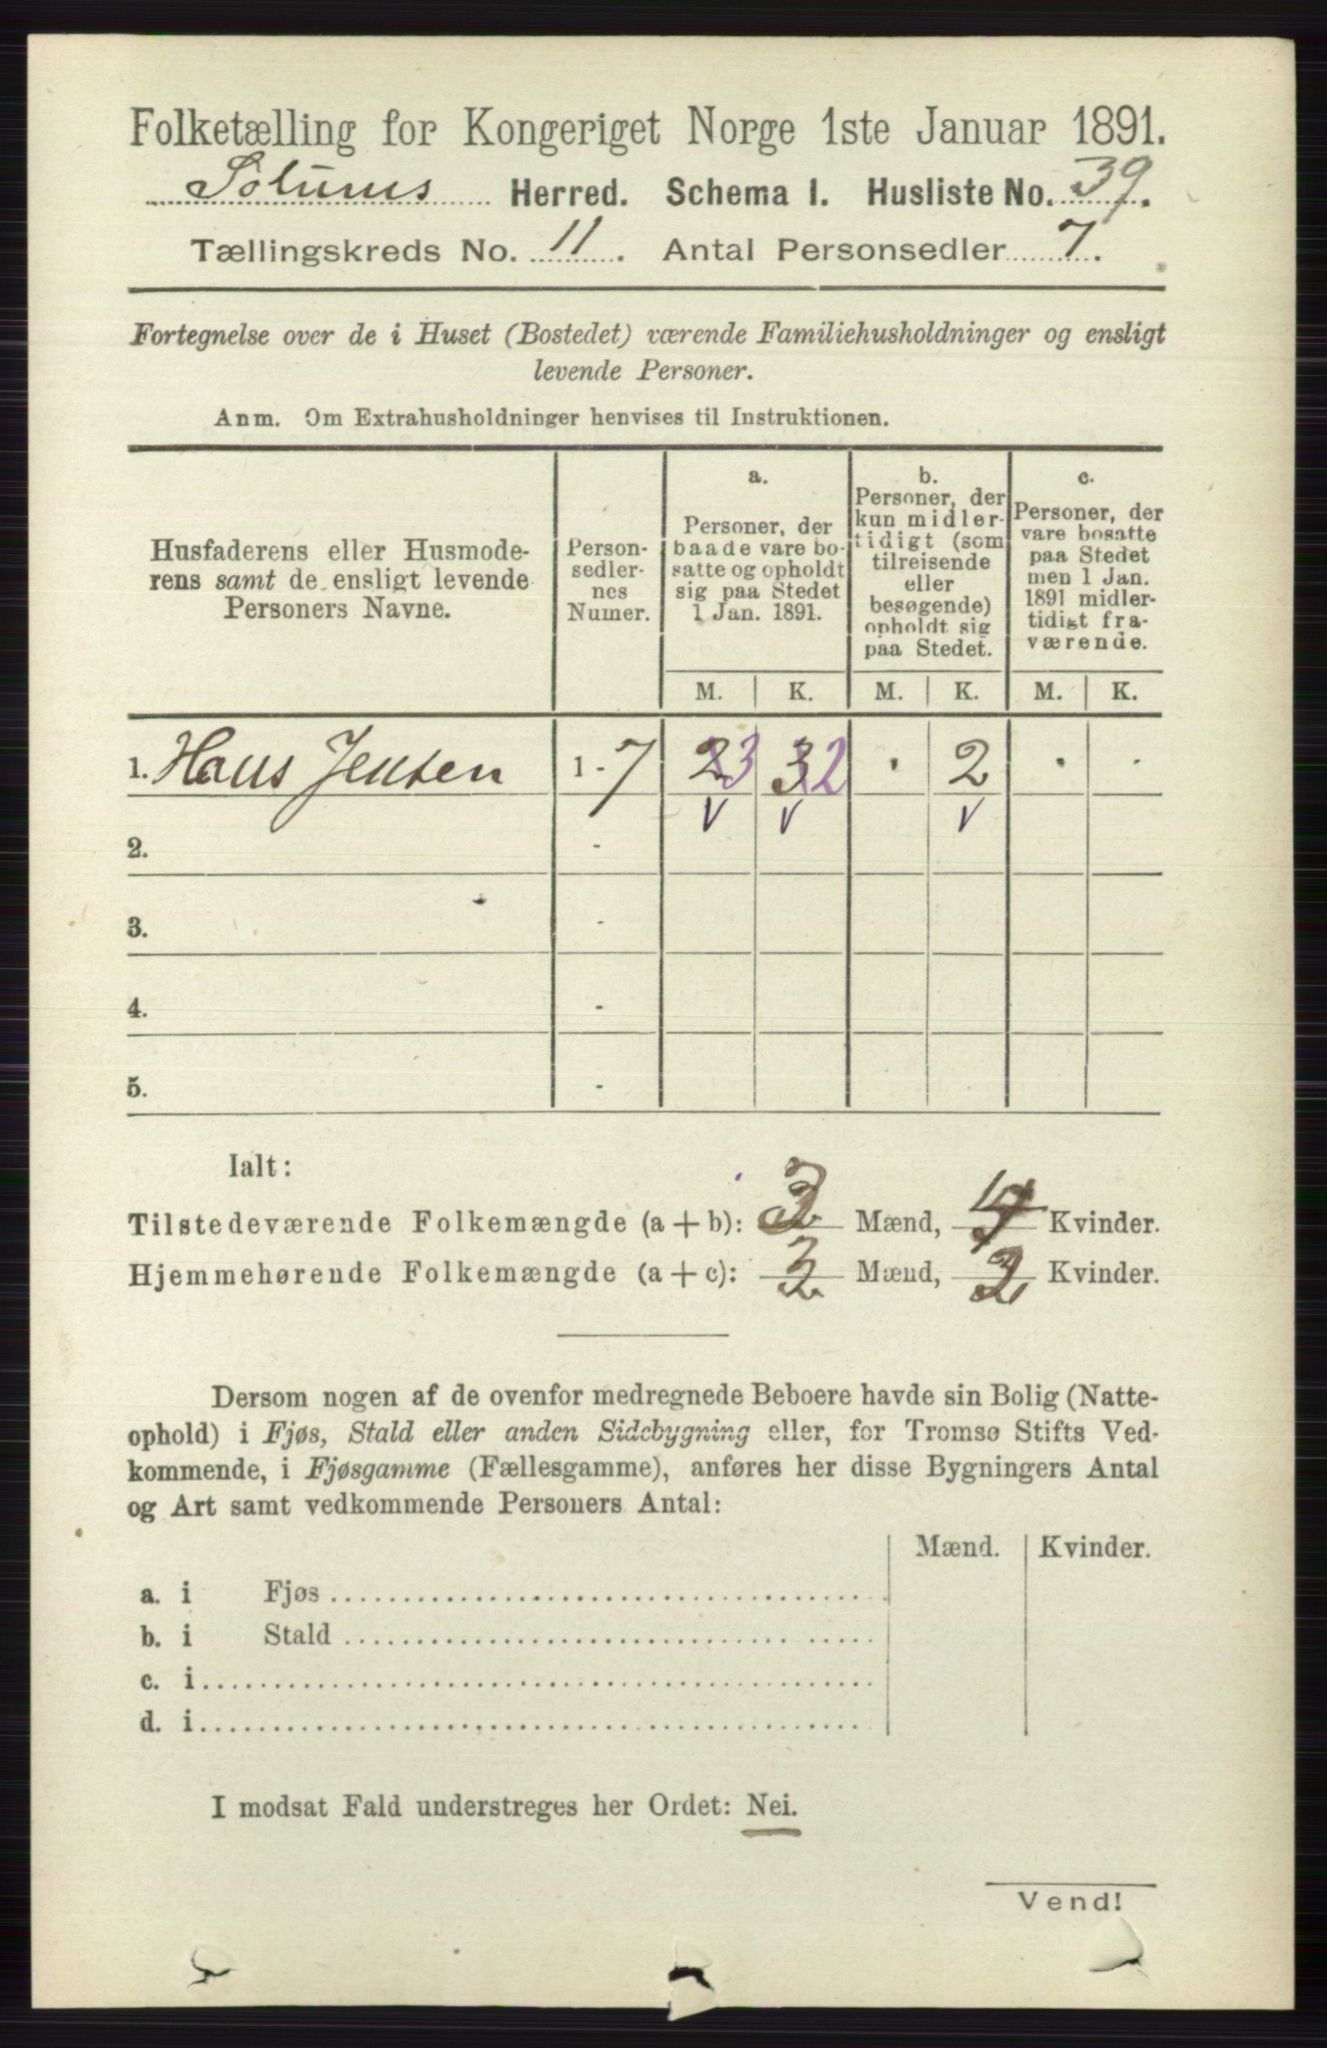 Folketælling for Kongeriget Norge 1ste Januar 1891.
Solums Herred. Schema I. Husliste No. 39.
Tællingskreds No. 11. Antal Personsedler 7.
Fortegnelse over de i Huset (Bostedet) værende Familiehusholdninger og ensligt
levende Personer.
Anm. Om Extrahusholdninger henvises til Instruktionen.
Husfaderens eller Husmode-
rens samt de ensligt levende
Personers Navne.
Person-
sedler-
nes
Numer.
a.
Personer, der
baade vare bo-
satte og opholdt
sig paa Stedet
1 Jan. 1891.
b.
Personer, der
kun midler-
tidigt (som
tilreisende
eller
besøgende)
opholdt sig
paa Stedet.
c.
Personer, der
vare bosatte
paa Stedet
men 1 Jan.
1891 midler-
tidigt fra-
værende.
M. K. M. K. M. K.
1. Hans Jensen 1-7 23 32 . 2 . .
2. -
3. -
4. -
5. -
Ialt:
Tilstedeværende Folkemængde (a+b): 3 Mænd, 4 Kvinder.
Hjemmehørende Folkemængde (a+c): 3 Mænd, 2 Kvinder.
Dersom nogen af de ovenfor medregnede Beboere havde sin Bolig (Natte-
ophold) i Fjøs, Stald eller anden Sidebygning eller, for Tromsø Stifts Ved-
kommende, i Fjøsgamme (Fællesgamme), anføres her disse Bygningers Antal
og Art samt vedkommende Personers Antal:
Mænd. Kvinder.
a. i Fjøs
b. i Stald
c. i
d. i
I modsat Fald understreges her Ordet: Nei.
Vend!